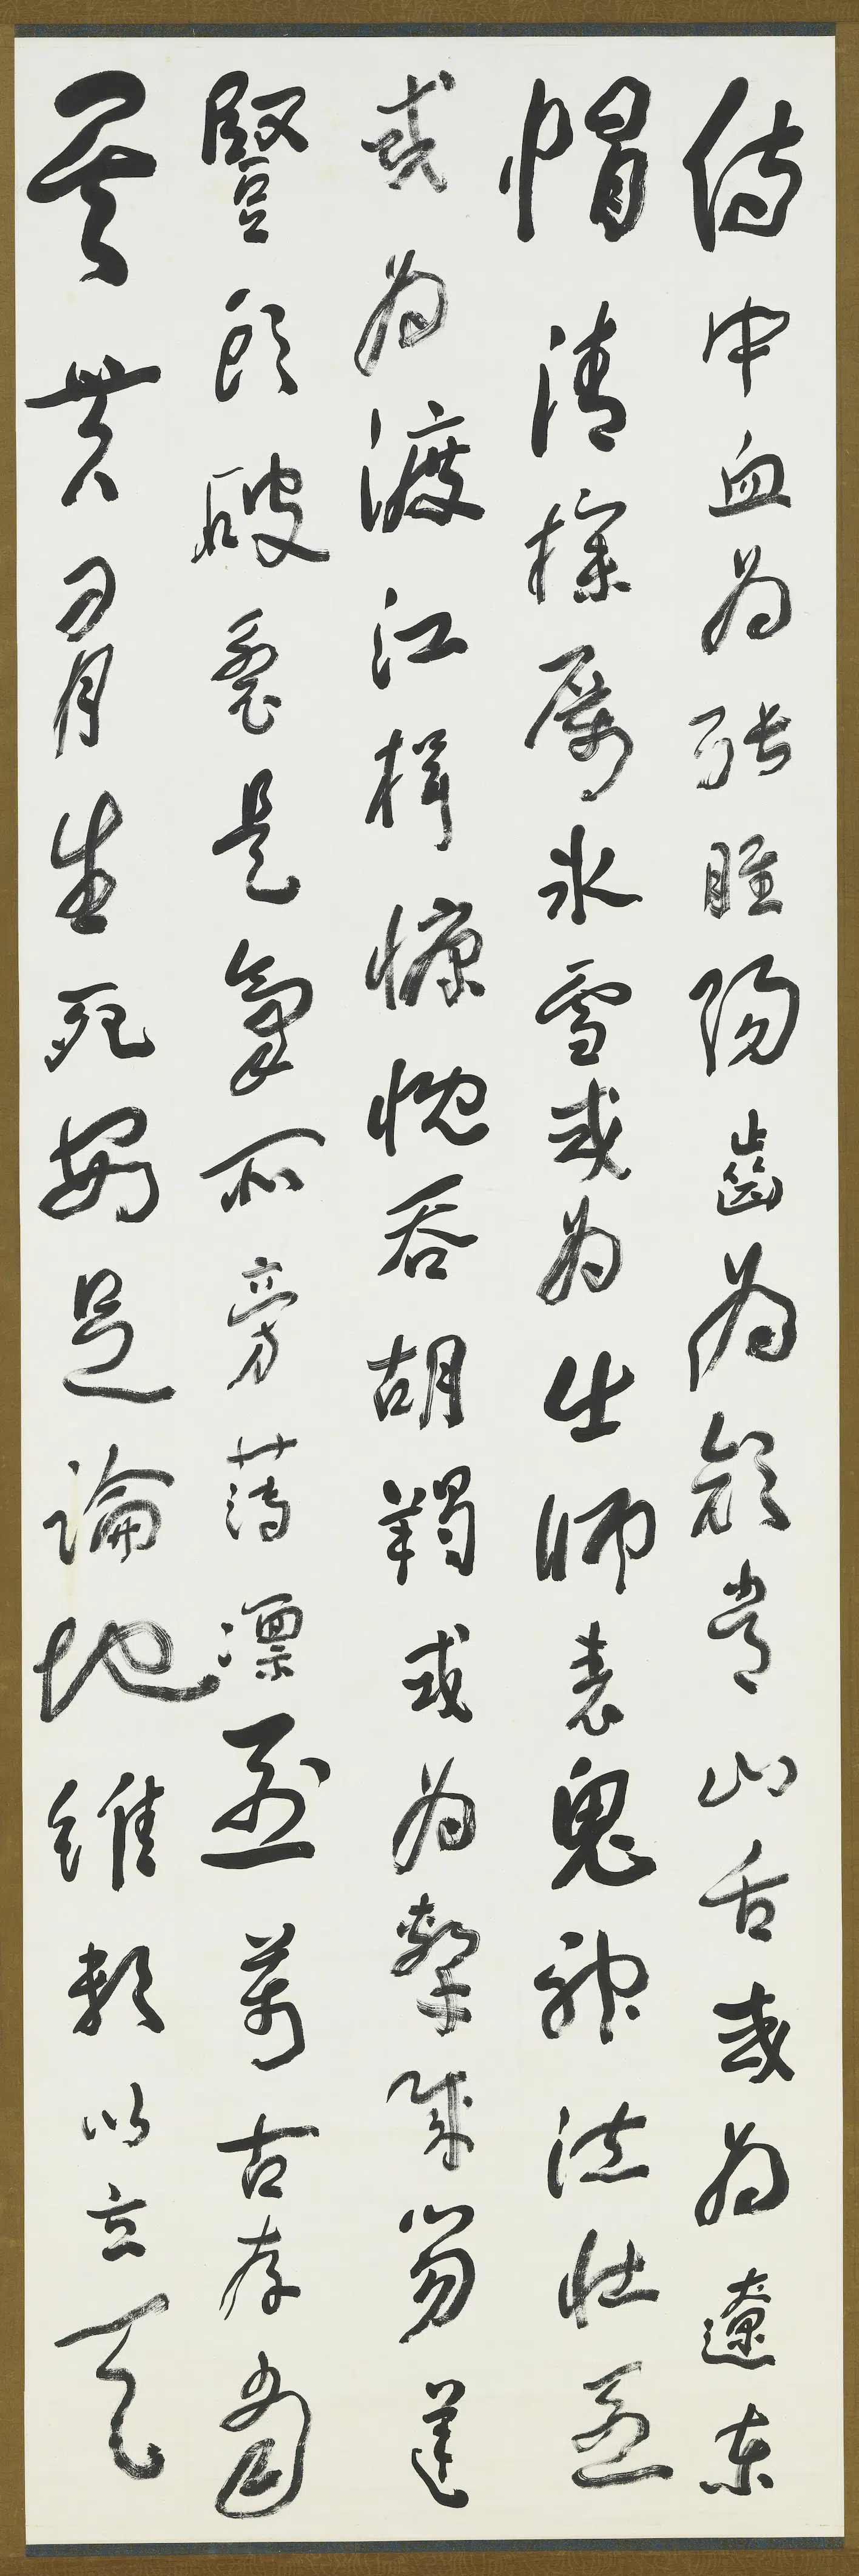 侍中血為張睢陽齒為顏常山舌或為遼東
帽清操厲氷雪或為出師表鬼神泣壯烈
或為渡江楫慷慨吞胡羯或為擊賊笏逆
豎頭破裂是氣所旁薄凜烈萬古存當
其貫日月生死安足論地維賴以立天